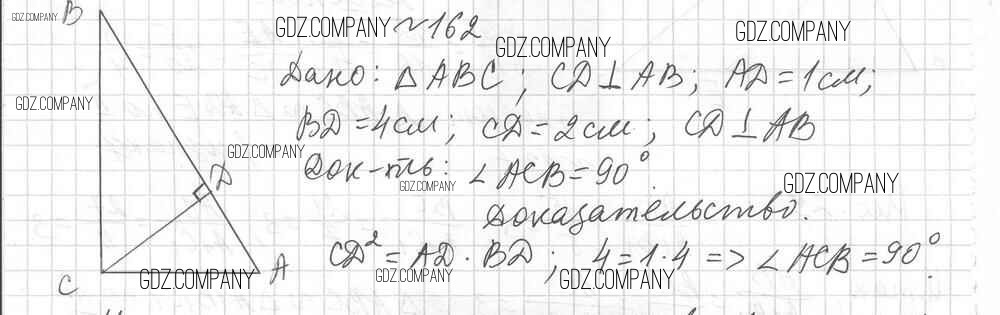 GDZ.COMPANY B GDZ.COMPANY ~162 GDZ.COMPANY GDZ.COMPANY
GDZ.COMPANY Дано: △ABC; CD⊥AB; AD=1см;
BD=4см; CD=2см; CD⊥AB
GDZ.COMPANY D Док-ть: ∠ACB=90°.
GDZ.COMPANY GDZ.COMPANY
Доказательство.
CD²=AD·BD; 4=1·4 => ∠ACB=90°.
C GDZ.COMPANY A GDZ.COMPANY GDZ.COMPANY